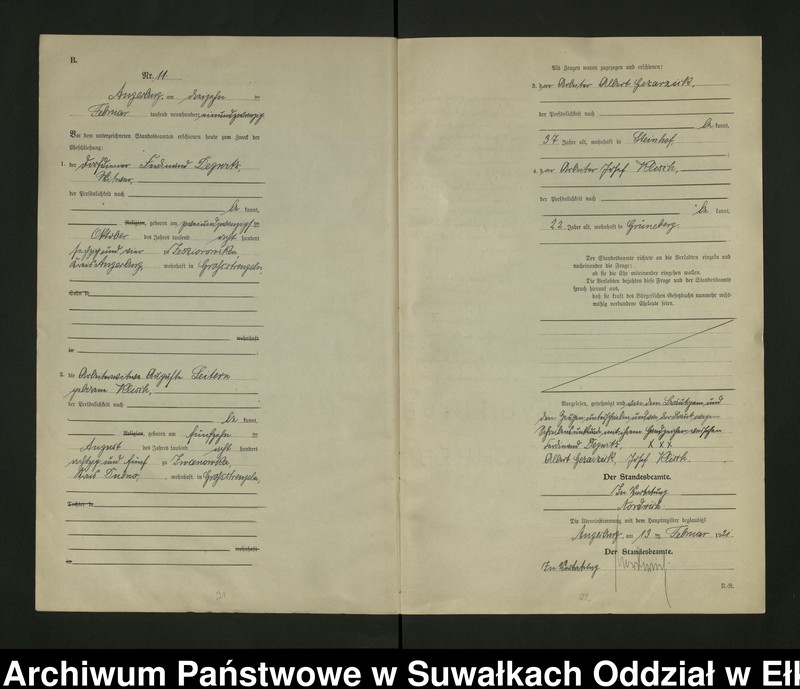 B.
Nr. 11
Angerburg, am dreizehn ten
Februar tausend neunhundert einundzwanzig
Vor dem unterzeichneten Standesbeamten erschienen heute zum Zweck der
Eheschließung:
1. der Dorfdiener Ferdinand
Witwer,
der Persönlichkeit nach
be kannt,
Religion, geboren am zweiundzwanzigsten
Oktober des Jahres tausend acht hundert
sechzig und vier zu
Kreis Angerburg, wohnhaft in Großstrengeln
Sohn de
wohnhaft
in
2. die Arbeiterwitwe Auguste
geborene Klesch,
der Persönlichkeit nach
be kannt,
Religion, geboren am fünfzehn ten
August des Jahres tausend acht hundert
achtzig und fünf zu
Kreis wohnhaft in Großstrengeln,
Tochter de
wohnhaft
in
21
Als Zeugen waren zugezogen und erschienen:
3. der Arbeiter Albert
der Persönlichkeit nach
be kannt,
37 Jahre alt, wohnhaft in Steinhof,
4. der Arbeiter Josef Klesch,
der Persönlichkeit nach
be kannt,
22 Jahre alt, wohnhaft in Grüneberg.
Der Standesbeamte richtete an die Verlobten einzeln und
nacheinander die Frage:
ob sie die Ehe miteinander eingehen wollen.
Die Verlobten bejahten diese Frage und der Standesbeamte
sprach hierauf aus,
daß sie kraft des Bürgerlichen Gesetzbuchs nunmehr recht-
mäßig verbundene Eheleute seien.
Vorgelesen, genehmigt und von dem Bräutigam und
den Zeugen unterschrieben, und von der Braut wegen
Schreibensunkunde mit ihrem Handzeichen versehen
Ferdinand X X X
Albert Josef Klesch.
Der Standesbeamte.
In Vertretung
Die Übereinstimmung mit dem Hauptregister beglaubigt
Angerburg, am 13 ten Februar 1921.
Der Standesbeamte.
In Vertretung
22
Archiwum Państwowe w Suwałkach Oddział w Ełk